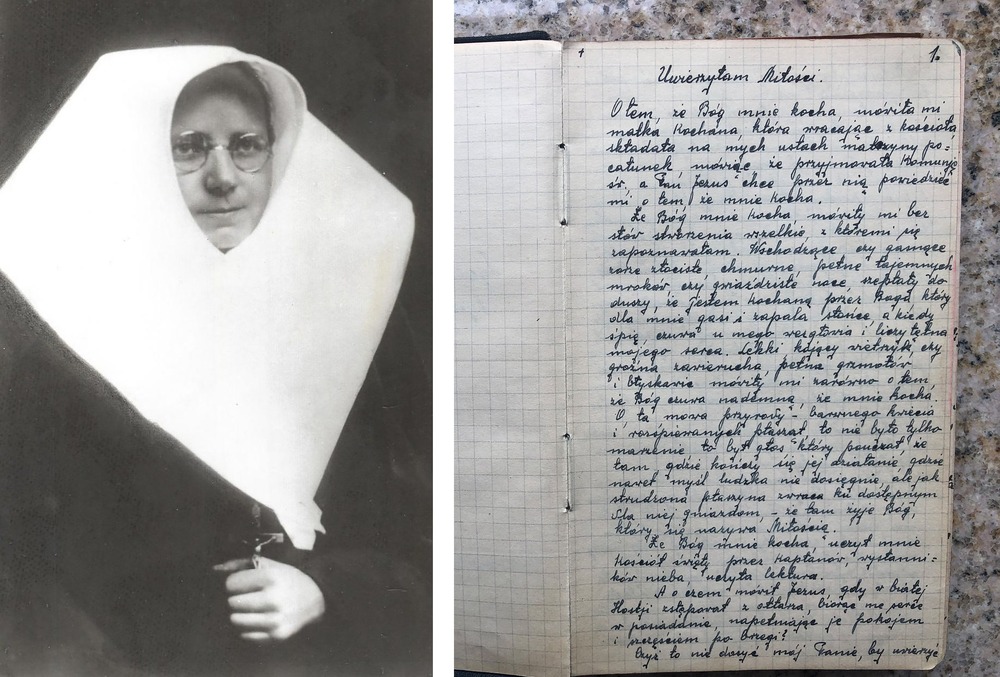 1.
Uwierzyłam Miłości.
O tem, że Bóg mnie kocha mówiła mi
matka kochana, która wracając z kościoła
składała na mych ustach matczyny po=
całunek mówiąc że przyjmowała Komunję
św. a Pan Jezus chce przez nią powiedzieć
mi o tem, że mnie kocha.
Że Bóg mnie kocha mówiły mi bez
słów stworzenia wszelkie, z któremi się
zapoznawałam. Wschodzące czy gasnące
zorze złociste chmurne, pełne tajemnych
mroków czy gwiaździste noce, szeptały do
duszy, że jestem kochaną przez Boga, który
dla mnie gasi i zapala słońce a kiedy
śpię, czuwa u mego wezgłowia i liczy tętna
mojego serca. Lekki kojący wietrzyk, czy
groźna zawierucha, pełna grzmotów
i błyskawic mówiły mi zarówno o tem,
że Bóg czuwa nademną, że mnie kocha.
O ta mowa przyrody - barwnego kwiecia
i rozśpiewanych ptasząt, to nie było tylko
marzenie to był głos który pouczał, że
tam, gdzie kończy się jej działanie, gdzie
nawet myśl ludzka nie dosięgnie, ale jak
strudzona ptaszyna zwraca ku dostępnym
dla niej gniazdom, - że tam żyje Bóg,
który się nazywa Miłością.
Że Bóg mnie kocha uczył mnie
Kościół święty przez Kapłanów, wysłanni=
ków nieba, uczyła lektura.
A o czem mówił Jezus, gdy w białej
Hostji zstępował z ołtarza, biorąc me serce
w posiadanie, napełniając je pokojem
i szczęściem po brzegi?
Czyż to nie dosyć mój Panie, by uwierzyć